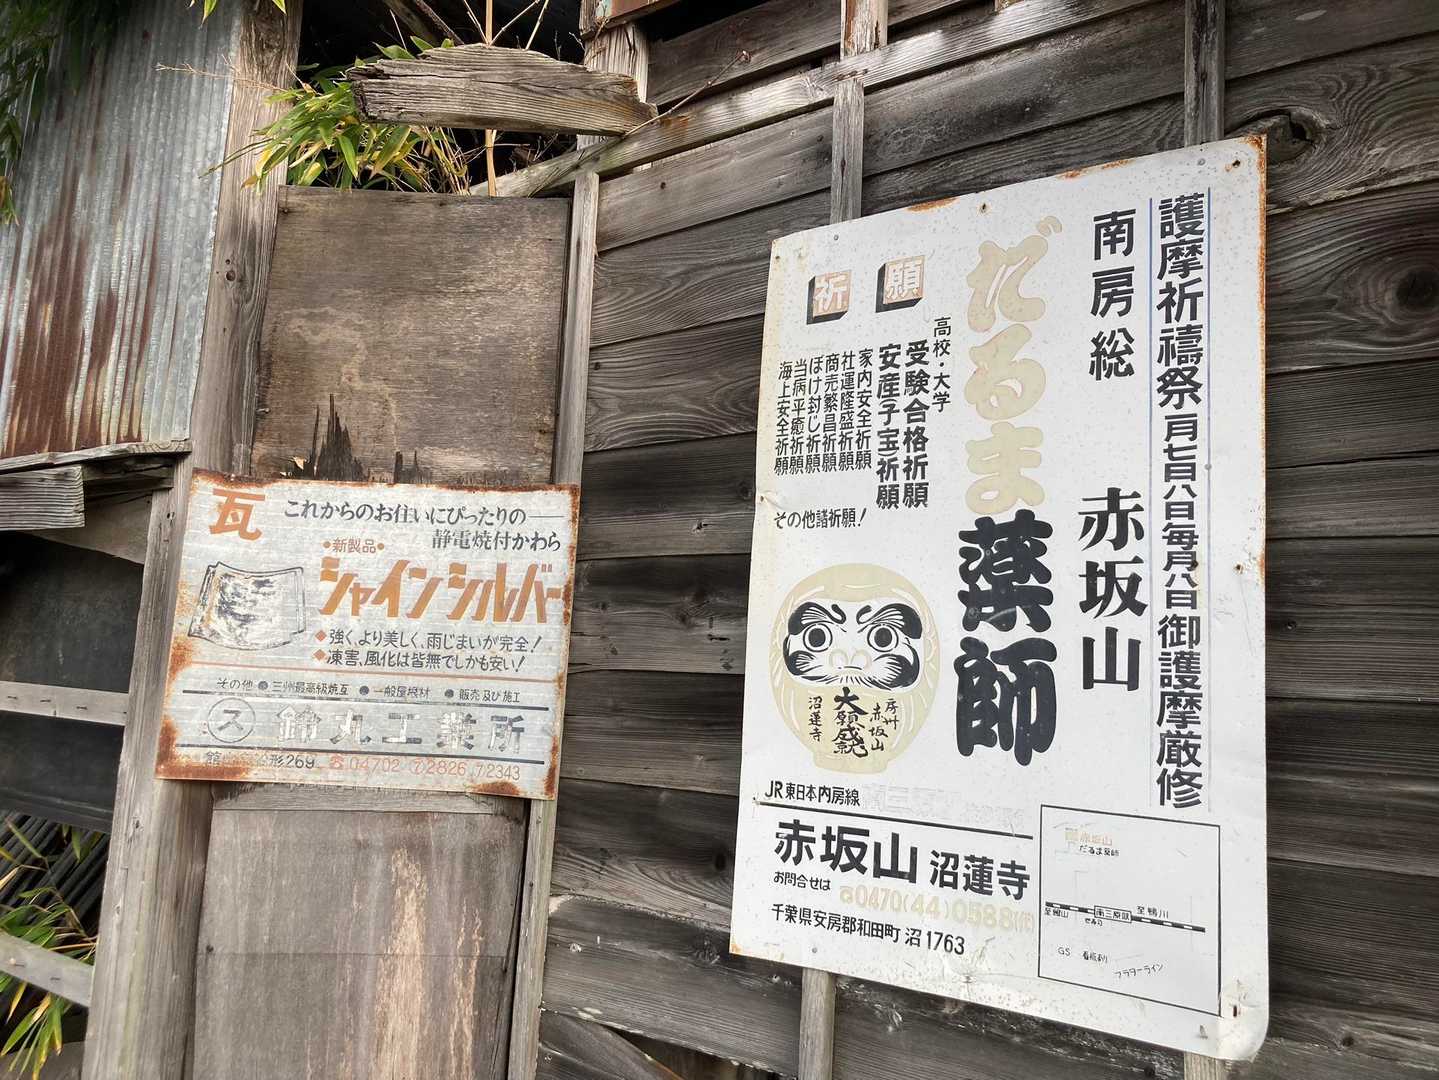 瓦
これからのお住いにぴったりの──
静電焼付かわら
•新製品•
シャインシルバー
◆強く、より美しく、雨じまいが完全!
◆凍害、風化は皆無でしかも安い!
その他 ●三州最高級焼瓦 ●一般屋根材 ●販売及び施工
ス 鈴丸工業所
館 形269 ☎04702 ⑦2826 ⑦2343
護摩祈禱祭 一月七日八日毎月八日御護摩厳修
南房総 赤坂山
だるま薬師
祈願
高校・大学
受験合格祈願
安産(子宝)祈願
家内安全祈願
社運隆盛祈願
商売繁昌祈願
ぼけ封じ祈願
当病平癒祈願
海上安全祈願
その他諸祈願!
房州
赤坂山
大願成就
沼蓮寺
JR東日本内房線
赤坂山 沼蓮寺
お問合せは
☎0470(44)0588(代)
千葉県安房郡和田町沼1763
赤坂山
だるま薬師
至館山
南三原駅
至鴨川
GS
フラワーライン